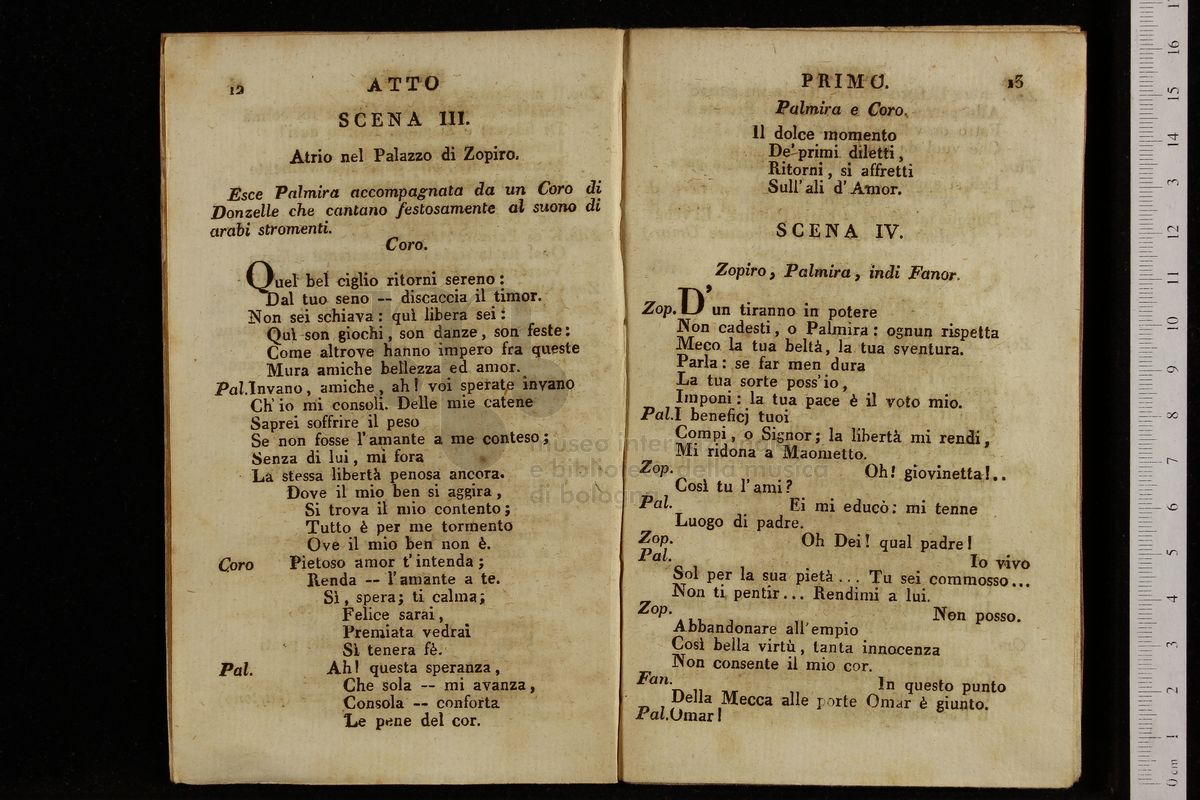 12
ATTO
SCENA III.
Atrio nel Palazzo di Zopiro.
Esce Palmira accompagnata da un Coro di
Donzelle che cantano festosamente al suono di
arabi stromenti.
Coro.
Quel bel ciglio ritorni sereno:
Dal tuo seno -- discaccia il timor.
Non sei schiava: quì libera sei:
Quì son giochi, son danze, son feste:
Come altrove hanno impero fra queste
Mura amiche bellezza ed amor.
Pal. Invano, amiche, ah! voi sperate invano
Ch'io mi consoli. Delle mie catene
Saprei soffrire il peso
Se non fosse l'amante a me conteso;
Senza di lui, mi fora
La stessa libertà penosa ancora.
Dove il mio ben si aggira,
Si trova il mio contento;
Tutto è per me tormento
Ove il mio ben non è.
Coro Pietoso amor t'intenda;
Renda -- l'amante a te.
Sì, spera; ti calma;
Felice sarai,
Premiata vedrai
Sì tenera fè.
Pal. Ah! questa speranza,
Che sola -- mi avanza,
Consola -- conforta
Le pene del cor.
PRIMO.
13
Palmira e Coro.
Il dolce momento
De' primi diletti,
Ritorni, si affretti
Sull'ali d'Amor.
SCENA IV.
Zopiro, Palmira, indi Fanor.
Zop. D'un tiranno in potere
Non cadesti, o Palmira: ognun rispetta
Meco la tua beltà, la tua sventura.
Parla: se far men dura
La tua sorte poss'io,
Imponi: la tua pace è il voto mio.
Pal. I beneficj tuoi
Compi, o Signor; la libertà mi rendi,
Mi ridona a Maometto.
Zop. Oh! giovinetta!..
Così tu l'ami?
Pal. Ei mi educò: mi tenne
Luogo di padre.
Zop. Oh Dei! qual padre!
Pal. Io vivo
Sol per la sua pietà... Tu sei commosso...
Non ti pentir... Rendimi a lui.
Zop. Non posso.
Abbandonare all'empio
Così bella virtù, tanta innocenza
Non consente il mio cor.
Fan. In questo punto
Della Mecca alle porte Omar è giunto.
Pal. Omar!
museo internazionale
e biblioteca della musica
di bologna
0 cm 1 2 3 4 5 6 7 8 9 10 11 12 13 14 15 16